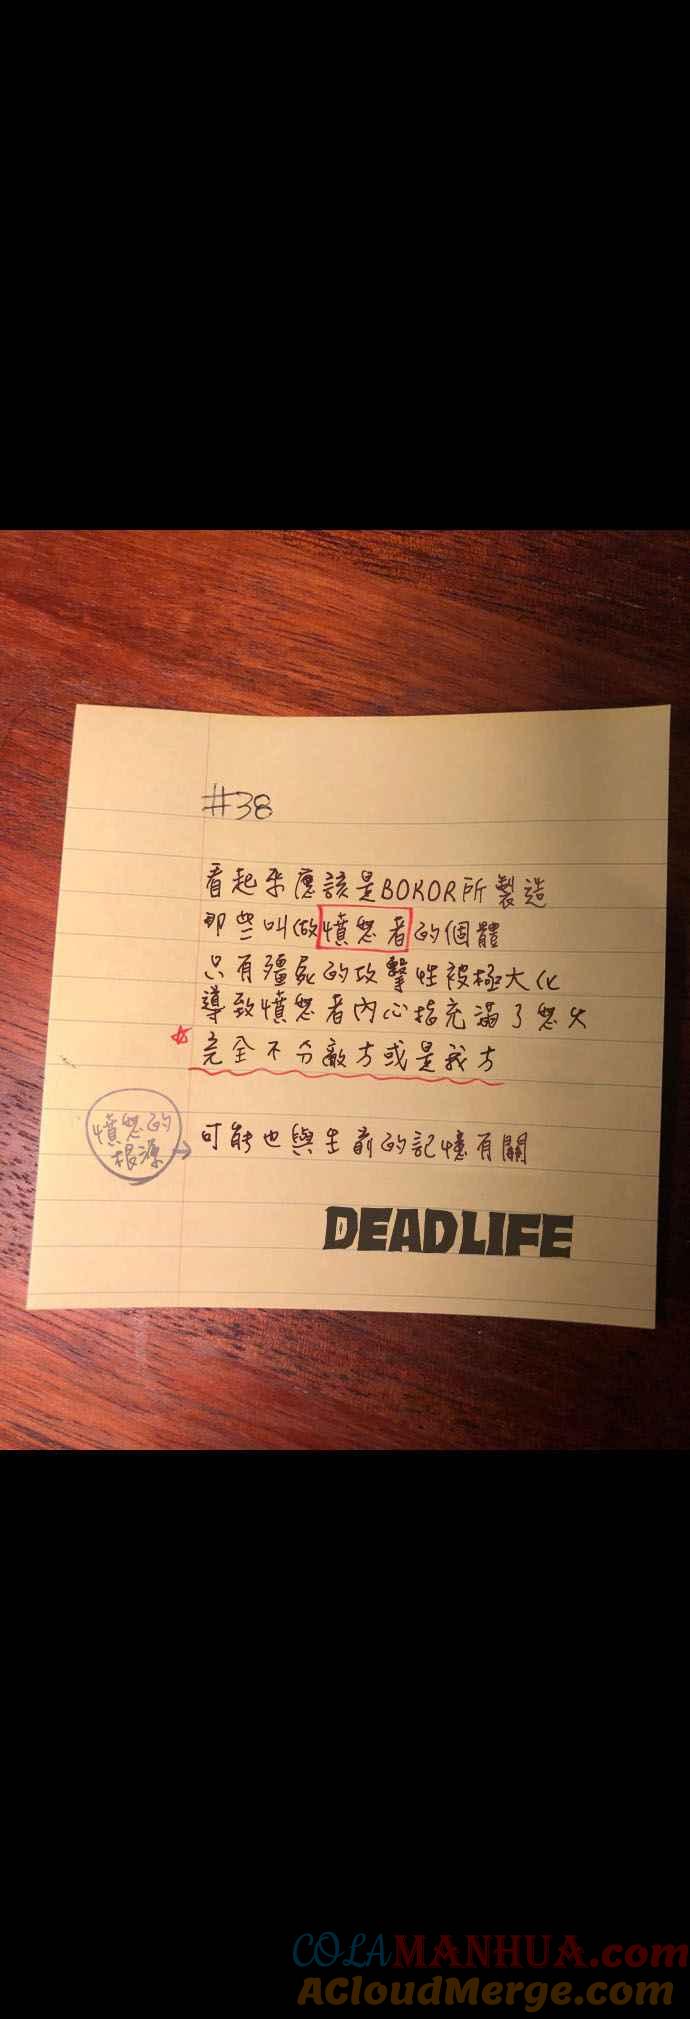 #38
看起來應該是BOKOR所製造
那些叫做憤怒者的個體
只有殭屍的攻擊性被極大化
導致憤怒者內心指充滿了怒火
☆
完全不分敵方或是我方
憤怒的
根源→
可能也與生前的記憶有關
DEADLIFE
COLAMANHUA.com
ACloudMerge.com